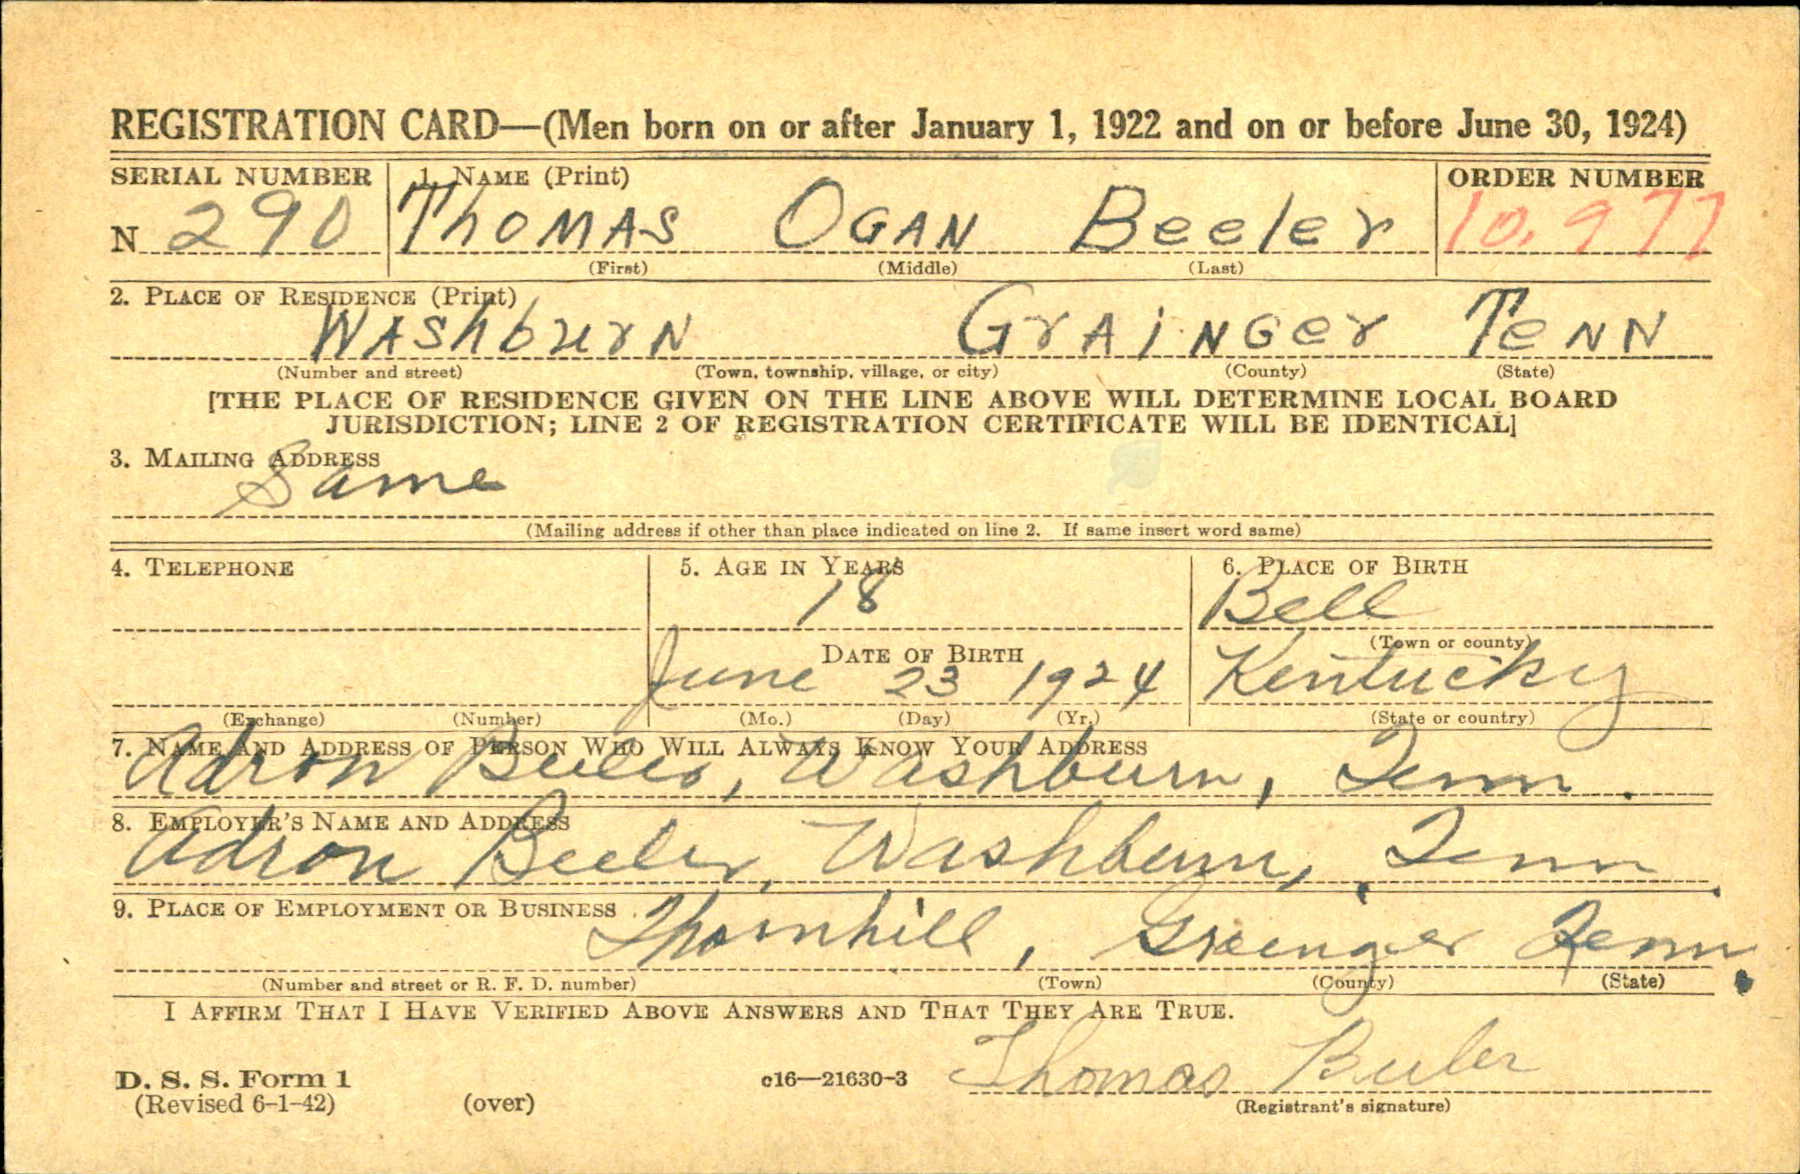 REGISTRATION CARD—(Men born on or after January 1, 1922 and on or before June 30, 1924)
SERIAL NUMBER 1. NAME (Print) ORDER NUMBER
N 290 Thomas Ogan Beeler 10,977
(First) (Middle) (Last)
2. PLACE OF RESIDENCE (Print)
Washburn Grainger Tenn
(Number and street) (Town, township, village, or city) (County) (State)
[THE PLACE OF RESIDENCE GIVEN ON THE LINE ABOVE WILL DETERMINE LOCAL BOARD
JURISDICTION; LINE 2 OF REGISTRATION CERTIFICATE WILL BE IDENTICAL]
3. MAILING ADDRESS
Same
(Mailing address if other than place indicated on line 2. If same insert word same)
4. TELEPHONE 5. AGE IN YEARS 6. PLACE OF BIRTH
18 Bell
DATE OF BIRTH (Town or county)
June 23 1924 Kentucky
(Exchange) (Number) (Mo.) (Day) (Yr.) (State or country)
7. NAME AND ADDRESS OF PERSON WHO WILL ALWAYS KNOW YOUR ADDRESS
Adron Beeler, Washburn, Tenn.
8. EMPLOYER'S NAME AND ADDRESS
Adron Beeler, Washburn, Tenn.
9. PLACE OF EMPLOYMENT OR BUSINESS
Thornhill, Greenger Tenn.
(Number and street or R. F. D. number) (Town) (County) (State)
I AFFIRM THAT I HAVE VERIFIED ABOVE ANSWERS AND THAT THEY ARE TRUE.
D. S. S. Form 1 c16—21630-3 Thomas Beeler
(Revised 6-1-42) (over) (Registrant's signature)